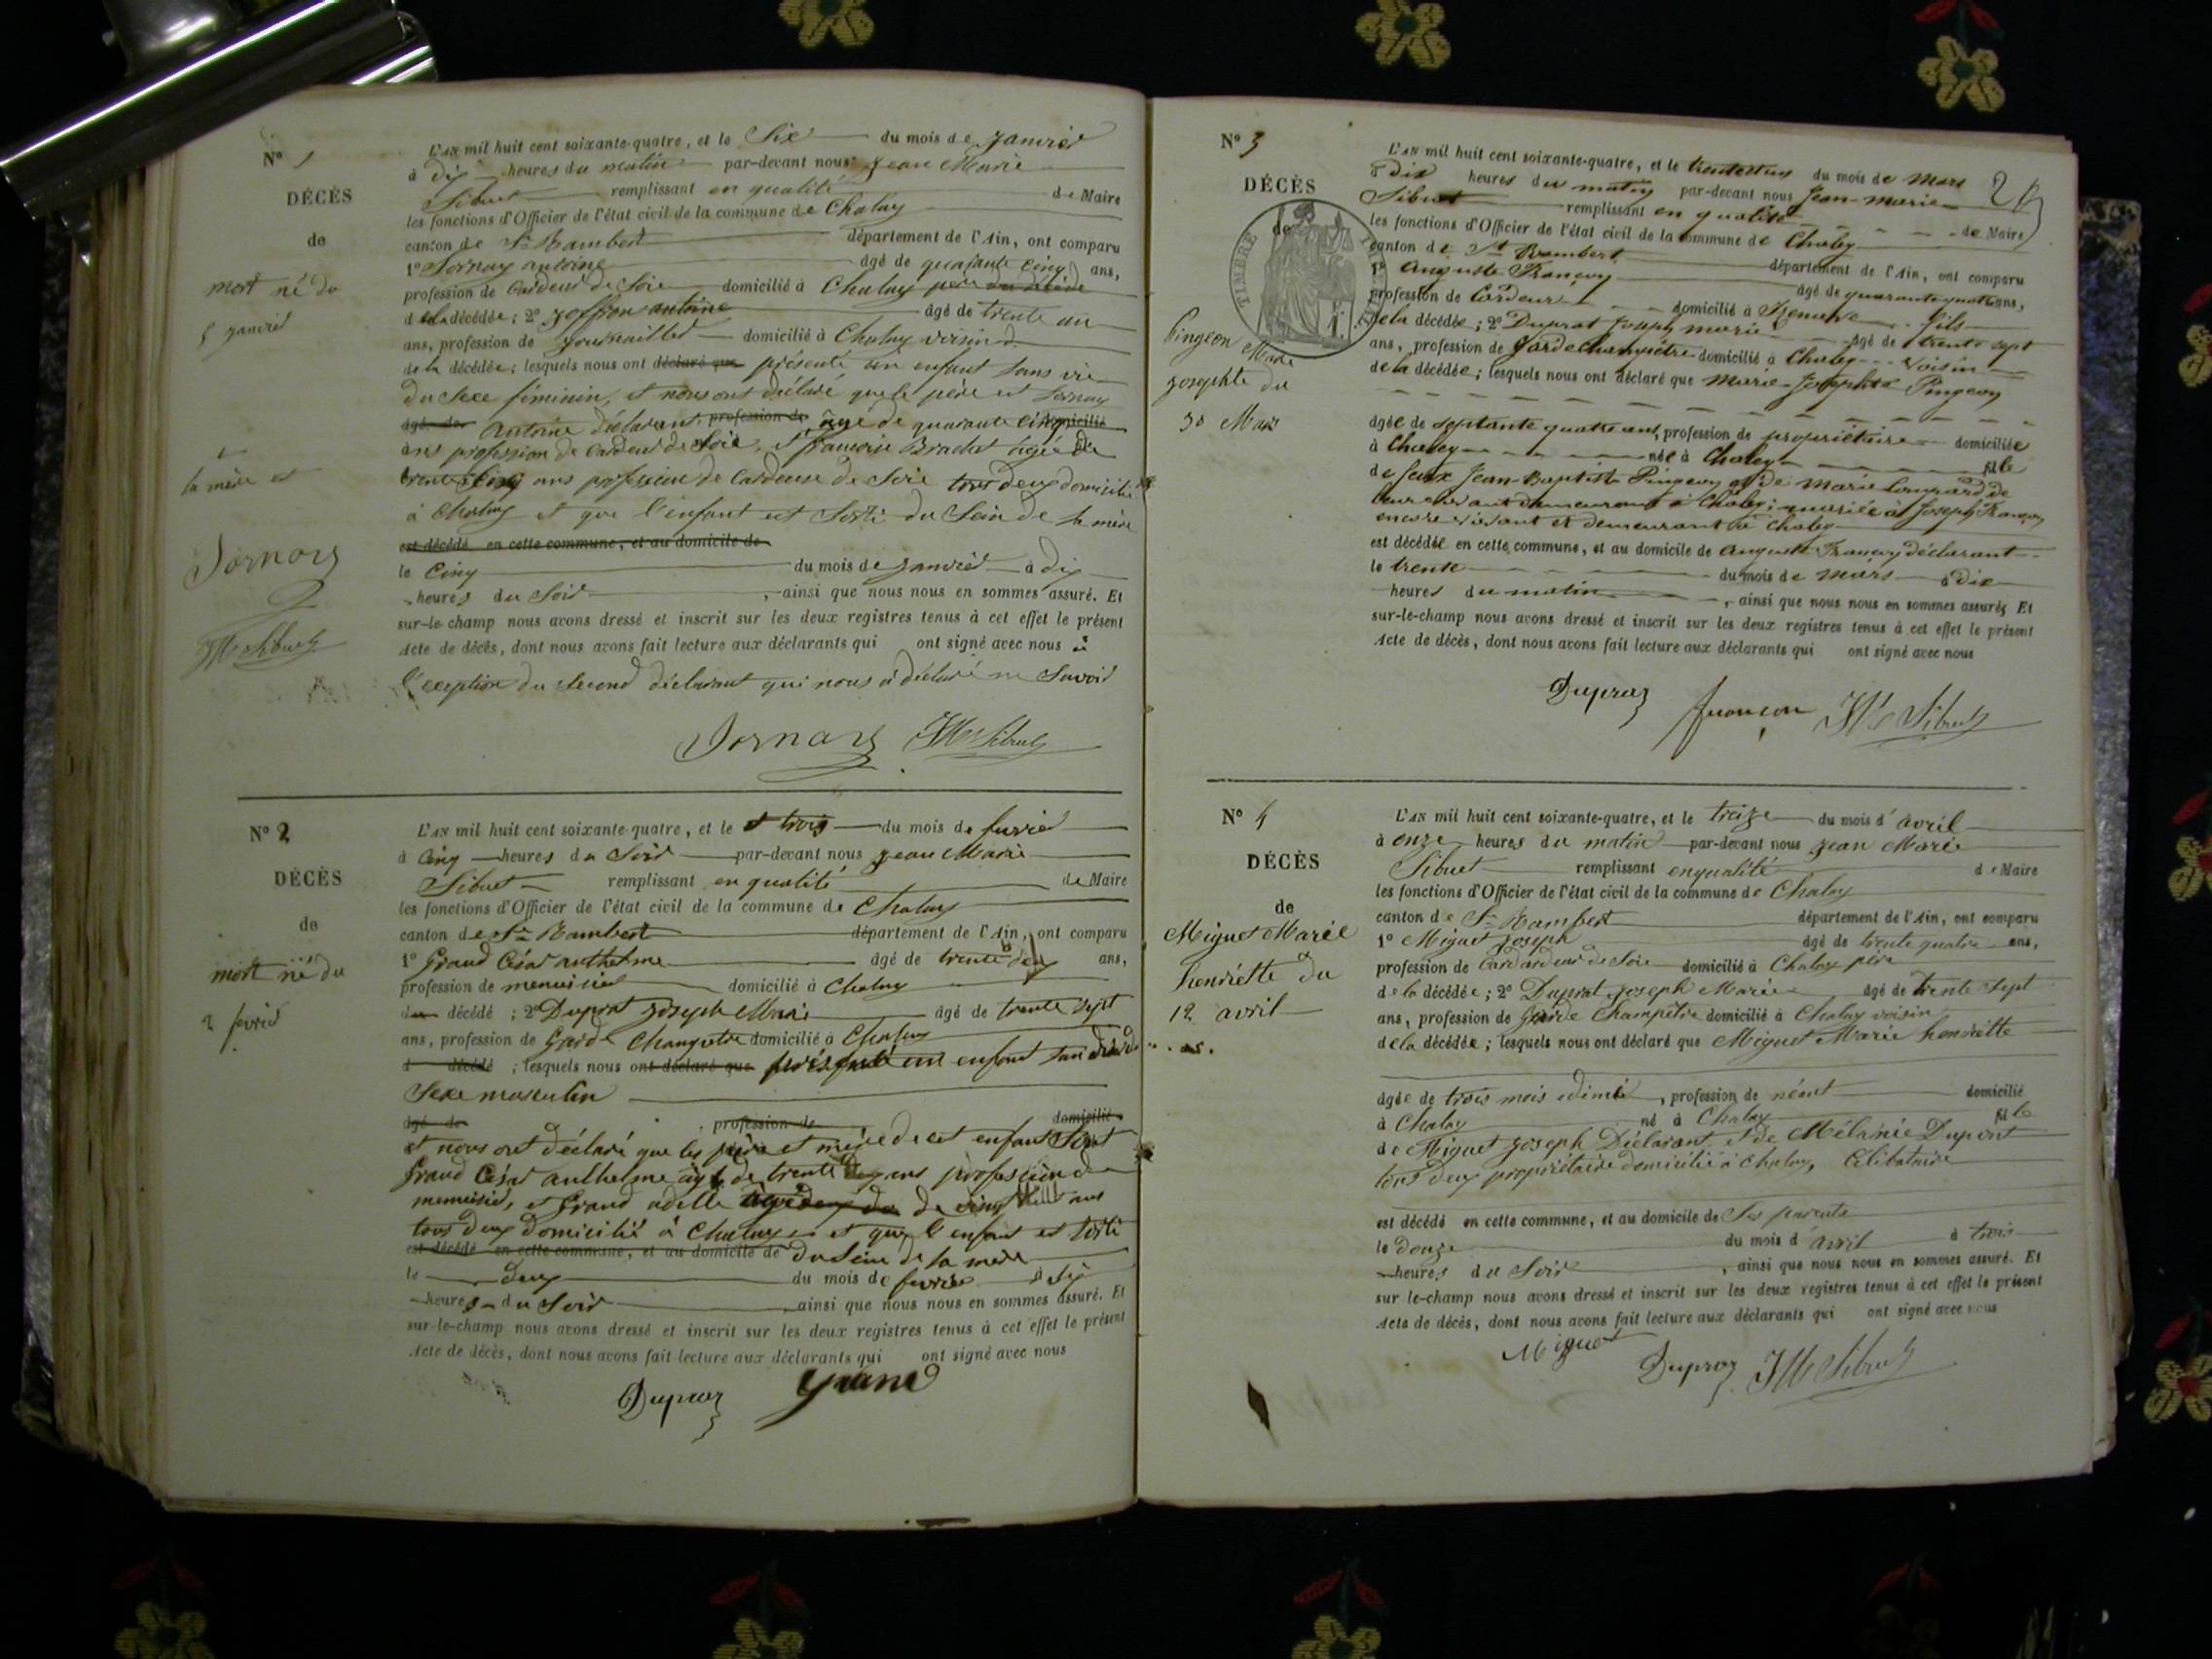 N° 1
DÉCÈS
de
mort né du
5 janvier
la mère est
Sornay
JM Sibuet
L'AN mil huit cent soixante-quatre, et le Six du mois de janvier
à dix heures du matin par-devant nous jean Marie
Sibuet remplissant en qualité de Maire
les fonctions d'Officier de l'état civil de la commune de Chaley
canton de St Rambert département de l'Ain, ont comparu
1° Sornay antoine âgé de quarante cinq ans,
profession de Cardeur de Soie domicilié à Chaley père du décédé
de la décédée; 2° joffron antoine âgé de trente un
ans, profession de journaillier domicilié à Chaley voisin d
de la décédée; lesquels nous ont déclaré que présenté un enfant sans vie
du sexe féminin, et nous ont déclaré que le père est Sornay
âgé de Antoine déclarant profession de âgé de quarante cinq domicilié
ans profession de Cardeur de Soie, et françoise Brachet âgée de
trente cinq ans profession de Cardeuse de Soie tous deux domicilié
à Chaley et que l'enfant est Sorti du Sein de la mère
est décédé en cette commune, et au domicile de
le Cinq du mois de janvier à dix
heures du Soir, ainsi que nous nous en sommes assuré. Et
sur-le-champ nous avons dressé et inscrit sur les deux registres tenus à cet effet le présent
Acte de décès, dont nous avons fait lecture aux déclarants qui ont signé avec nous à
l'exeption du Second déclarant qui nous a déclaré ne Savoir
Sornay JM Sibuet
N° 2
DÉCÈS
de
mort né du
2 fevrier
L'AN mil huit cent soixante-quatre, et le trois du mois de fevrier
à Cinq heures du Soir par-devant nous jean Marie
Sibuet remplissant en qualité de Maire
les fonctions d'Officier de l'état civil de la commune de Chaley
canton de St Rambert département de l'Ain, ont comparu
1° Grand César anthelme âgé de trente deux ans,
profession de menuisier domicilié à Chaley
du décédé; 2° Duprat joseph Marie âgé de trente Sept
ans, profession de Garde Champetre domicilié à Chaley
d décédé; lesquels nous ont déclaré que présenté un enfant sans vie du
Sexe masculin
âgé de profession de domicilié
et nous ont déclaré que les père et mère de cet enfant Sont
Grand César anthelme âgé de trente deux ans profession de
menuisier, et Grand adelle de vingt huit ans
tous deux domicilié à Chaley et que l'enfant est Sorti
est décédé en cette commune, et au domicile de du Sein de la mère
le deux du mois de fevrier à Six
heures du Soir, ainsi que nous nous en sommes assuré. Et
sur-le-champ nous avons dressé et inscrit sur les deux registres tenus à cet effet le présent
Acte de décès, dont nous avons fait lecture aux déclarants qui ont signé avec nous
Dupraz Grand
N° 3
DÉCÈS
de
TIMBRE
Pingeon Marie
josephte du
30 Mars
L'AN mil huit cent soixante-quatre, et le trente et un du mois de Mars
à Dix heures du matin par-devant nous Jean-Marie
Sibuet remplissant en qualité de Maire
les fonctions d'Officier de l'état civil de la commune de Chaley
canton de St Rambert département de l'Ain, ont comparu
1° Auguste Françon âgé de quarante quatre ans,
profession de Cardeur domicilié à Tenay fils
de la décédée; 2° Duprat Joseph marie âgé de trente sept
ans, profession de Garde Champêtre domicilié à Chaley voisin
de la décédée; lesquels nous ont déclaré que Marie-Josephte Pingeon
âgée de septante quatre ans, profession de propriétaire domiciliée
à Chaley née à Chaley fille
de feux Jean-Baptiste Pingeon et de Marie
leur vivant demeurant à Chaley; mariée à Joseph Françon
encore vivant et demeurant à Chaley
est décédée en cette commune, et au domicile de Auguste Françon déclarant
le trente du mois de mars à Dix
heures du matin, ainsi que nous nous en sommes assurés Et
sur-le-champ nous avons dressé et inscrit sur les deux registres tenus à cet effet le présent
Acte de décès, dont nous avons fait lecture aux déclarants qui ont signé avec nous
Dupraz françon JM Sibuet
N° 4
DÉCÈS
de
Miguet Marie
henriette du
12 avril
L'AN mil huit cent soixante-quatre, et le treize du mois d'avril
à onze heures du matin par-devant nous jean Marie
Sibuet remplissant en qualité de Maire
les fonctions d'Officier de l'état civil de la commune de Chaley
canton de St Rambert département de l'Ain, ont comparu
1° Miguet joseph âgé de trente quatre ans,
profession de Cardardeur de Soie domicilié à Chaley père
de la décédée; 2° Duprat joseph Marie âgé de trente Sept
ans, profession de Garde Champêtre domicilié à Chaley voisin
de la décédée; lesquels nous ont déclaré que Miguet Marie henriette
âgée de trois mois edimie, profession de néent domicilié
à Chaley né à Chaley fille
de Miguet joseph Déclarant et de Mélanie Dupont
tous deux propriétaire domicilié à Chaley, Célibataire
est décédé en cette commune, et au domicile de Ses parents
le Douze du mois d'avril à trois
heures du Soir, ainsi que nous nous en sommes assuré. Et
sur-le-champ nous avons dressé et inscrit sur les deux registres tenus à cet effet le présent
Acte de décès, dont nous avons fait lecture aux déclarants qui ont signé avec nous
Miguet
Dupraz JM Sibuet